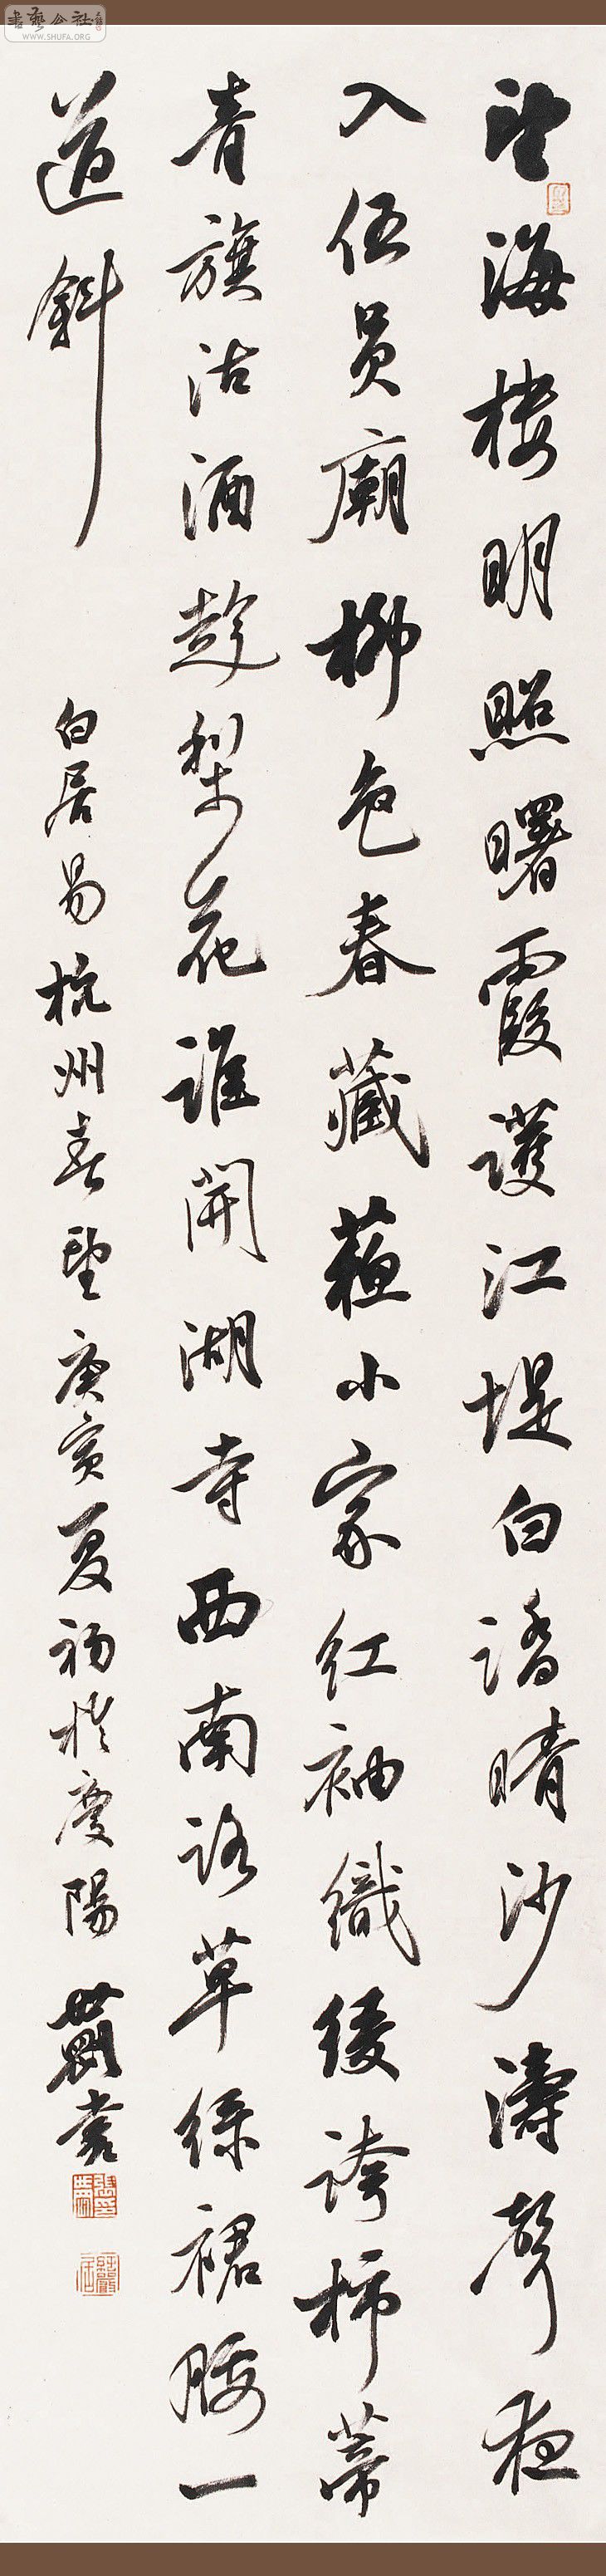 書藝公社
WWW.SHUFA.ORG
望海楼明照曙霞護江堤白踏晴沙濤聲夜
入伍員廟柳色春藏蘇小家紅袖織綾誇柿蒂
青旗沽酒趁梨花誰開湖寺西南路草緑裙腰一
道斜
白居易杭州春望庚寅夏初於慶陽世剛書